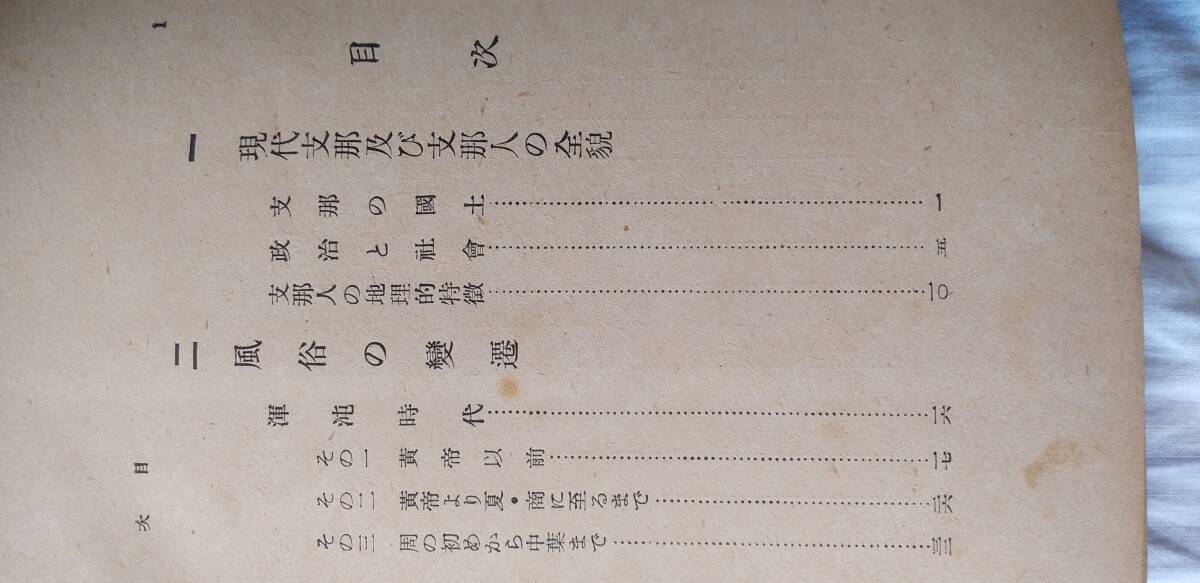 目次
一 現代支那及び支那人の全貌
支那の國土……一
政治と社會……五
支那人の地理的特徴……一〇
二 風俗の變遷
渾沌時代……一六
その一 黃帝以前……一七
その二 黃帝より夏・商に至るまで……二六
その三 周の初めから中葉まで……三三
目次
1